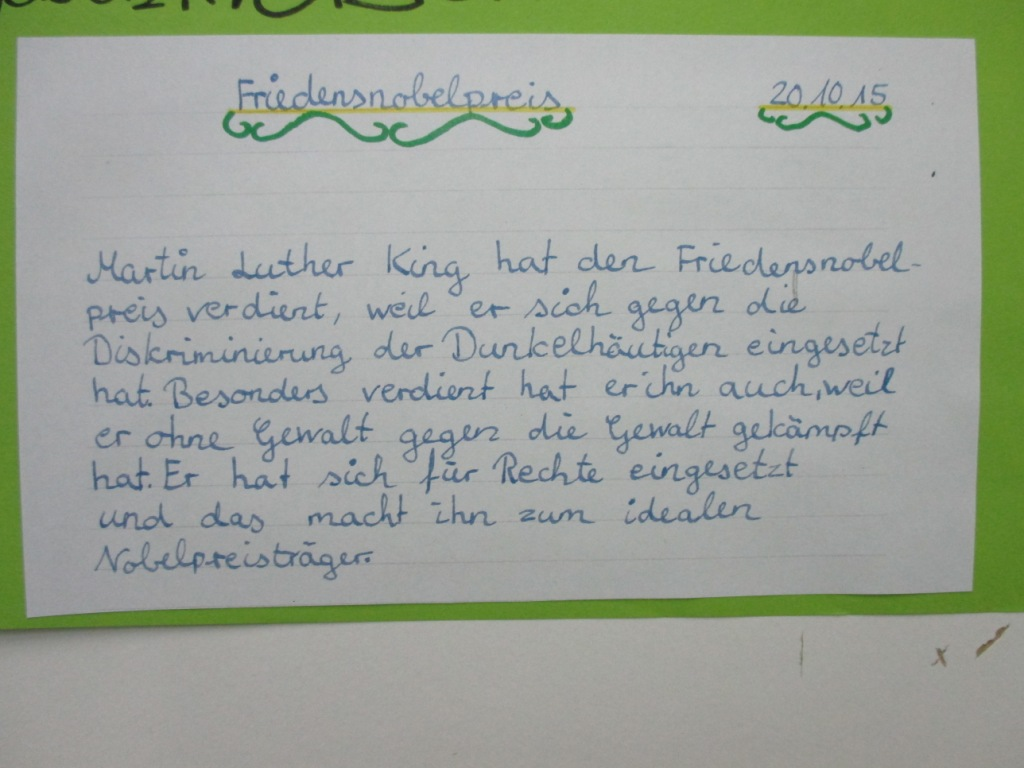 Friedensnobelpreis 20.10.15
Martin Luther King hat den Friedensnobel-
preis verdient, weil er sich gegen die
Diskriminierung der Dunkelhäutigen eingesetzt
hat. Besonders verdient hat er ihn auch, weil
er ohne Gewalt gegen die Gewalt gekämpft
hat. Er hat sich für Rechte eingesetzt
und das macht ihn zum idealen
Nobelpreisträger.